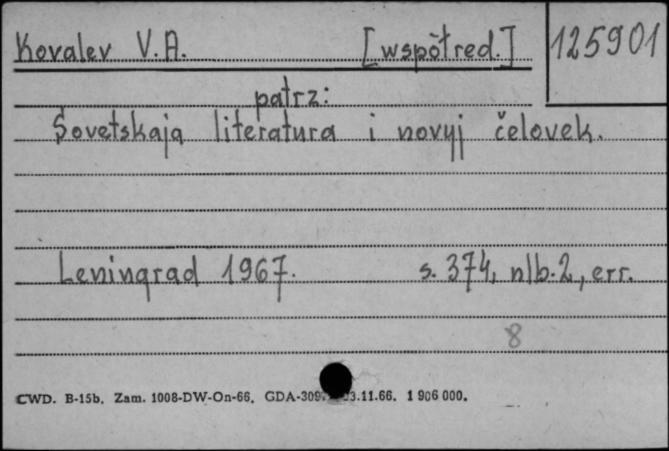 Kovalev V.A. [współred.] 125901
patrz:
Sovetskaja literatura i novyj čelovek.
Leningrad 1967. s. 374, nlb. 2, err.
8
CWD. B-15b. Zam. 1008-DW-On-66. 3.11.66. 1 906 000.